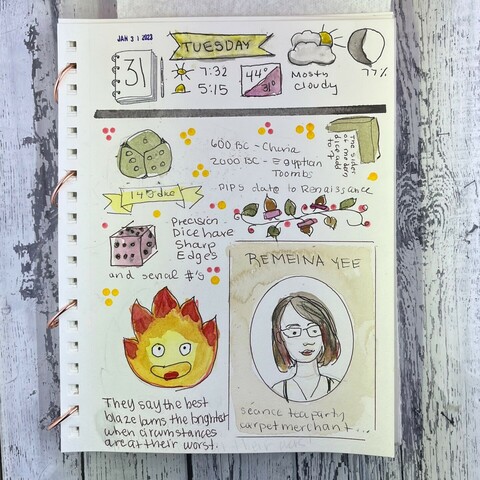 JAN 31 2023
TUESDAY
31
7:32
5:15
44°
31°
Mosty
cloudy
77%
600 BC - China
2000 BC - Egyptian
Toombs
The sides
of modern
dice add
to 7
149 dice
PIPS date to Renaissance
Precision
Dice have
Sharp
Edges
and serial #'s
REMEINA YEE
séance tea party
carpet merchant...
They say the best
blaze burns the brightest
when circumstances
are at their worst.